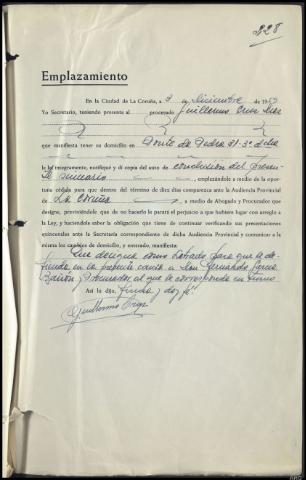 228
Emplazamiento
En la Ciudad de La Coruña, a 9 de Diciembre de 19
Yo Secretario, teniendo presente al procesado Guillermo Cruz
que manifiesta tener su domicilio en
le leí íntegramente, notifiqué y dí copia del auto de conclusión del presen-
te sumario, emplazándole a medio de la opor-
tuna cédula para que dentro del término de diez días comparezca ante la Audiencia Provincial
de La Coruña, a medio de Abogado y Procurador que
designe, previniéndole que de no hacerlo le parará el perjuicio a que hubiere lugar con arreglo a
la Ley, y haciéndole saber la obligación que tiene de continuar verificando sus presentaciones
quincenales ante la Secretaría correspondiente de dicha Audiencia Provincial y comunicar a
la misma los cambios de domicilio, y enterado, manifiesta:
Que designa como Letrado para que le de-
fienda en la presente causa a Don Fernando
y Procurador al que le corresponda en turno
Así lo dijo, firma y doy fé.
Guillermo Cruz